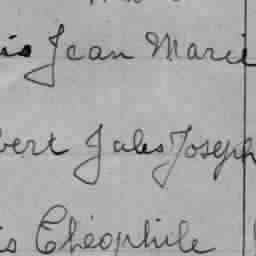 is Jean Marie
bert Jules Joseph
is Théophile